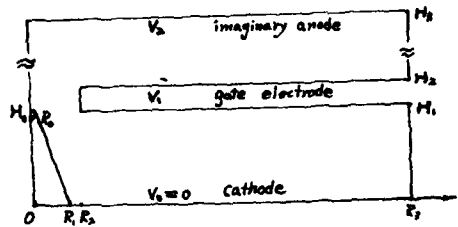 V₂ imaginary anode H₃
H₂
V₁ gate electrode
H₀ R₀ H₁
V₀=0 Cathode
O R₁ R₂ R₃